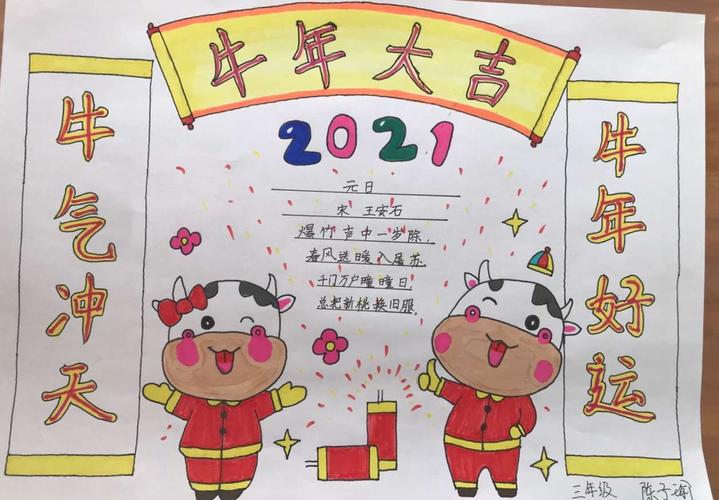 牛年大吉
2021
牛气冲天
元日
宋 王安石
爆竹声中一岁除,
春风送暖入屠苏.
千门万户瞳瞳日
总把新桃换旧服.
牛年好运
三年级 陈子